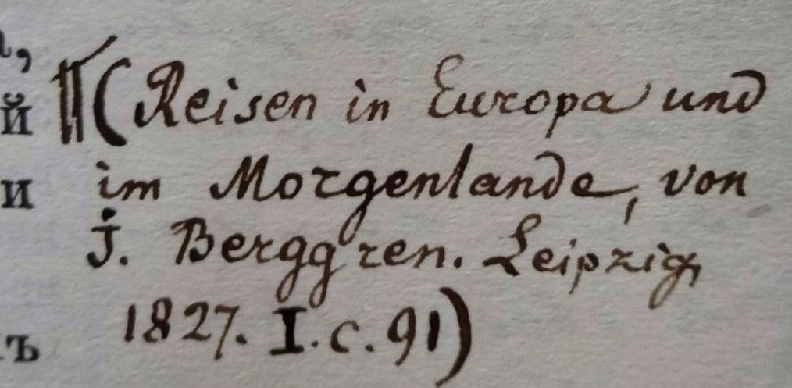 ¶(Reisen in Europa und
й
и im Morgenlande, von
J. Berggren. Leipzig,
1827. I. c. 91)
ъ